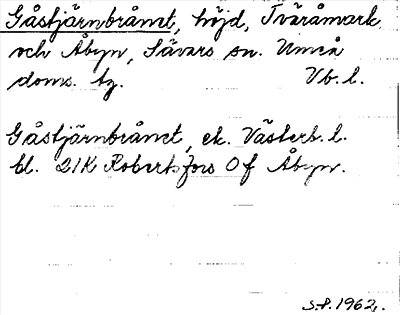 Gåstjärnbrånet, höjd, Tväråmark
och Åbyn, Sävars sn. Umeå
doms. tg. Vb. l.
Gåstjärnbrånet, ek. Västerb. l.
bl. 21K Robertsfors 0f Åbyn.
S.P. 1962.